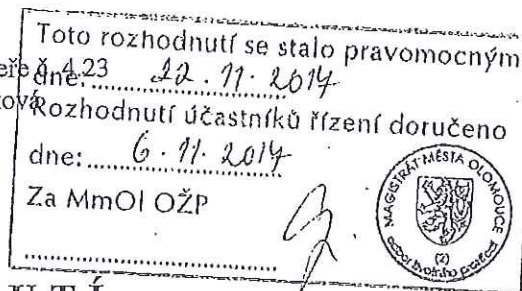 Toto rozhodnutí se stalo pravomocným
eře č. 4.23
dne: 22. 11. 2017
ková
Rozhodnutí účastníků řízení doručeno
dne: 6. 11. 2017
Za MmOl OŽP
MAGISTRÁT MĚSTA OLOMOUCE
(2)
odbor životního prostředí
U T Í